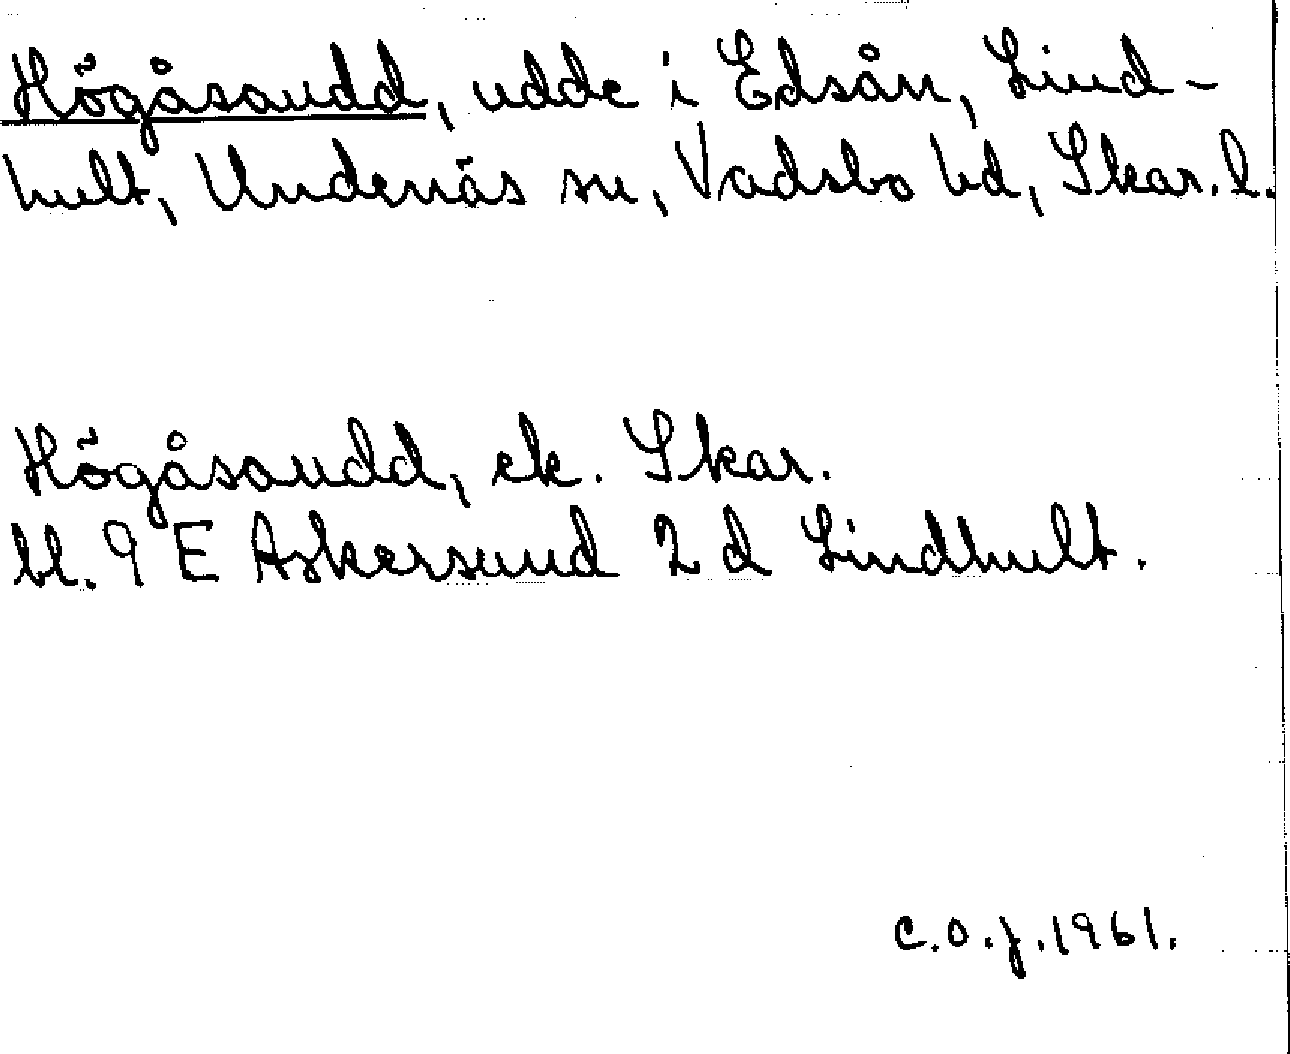 Högåsaudd, udde i Edsån, Lind-
hult, Undenäs sn, Vadsbo hd, Skar. l.
Högåsaudd, ek. Skar.
bl. 9 E Askersund 2 d Lindhult.
C.O.J. 1961.